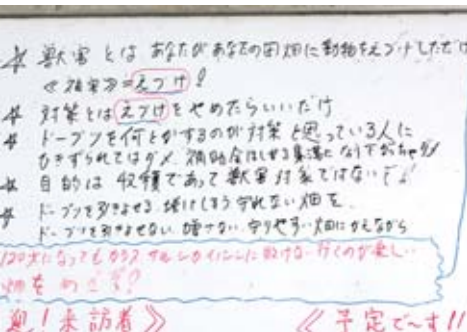 * 獣害とは あなたがあなたの田畑に動物をえづけしただけ
≪獣害≫=えづけ!
* 対策とはえづけをやめたらいいだけ
* ドーブツを何とかするのが対策と思っている人に
ひきずられてはダメ 補助金
* 目的は収穫であって獣害対策ではない
* ドーブツを引きよせる 増やしてしまう 守れない畑を
ドーブツを引きよせない 増やさない 守りやすい畑にかえながら
120才になってもカラス サル シカ イノシシに負けない 行くのが楽し・・
畑をめざす?
迎!来訪者≫
≪予定で〜す!!